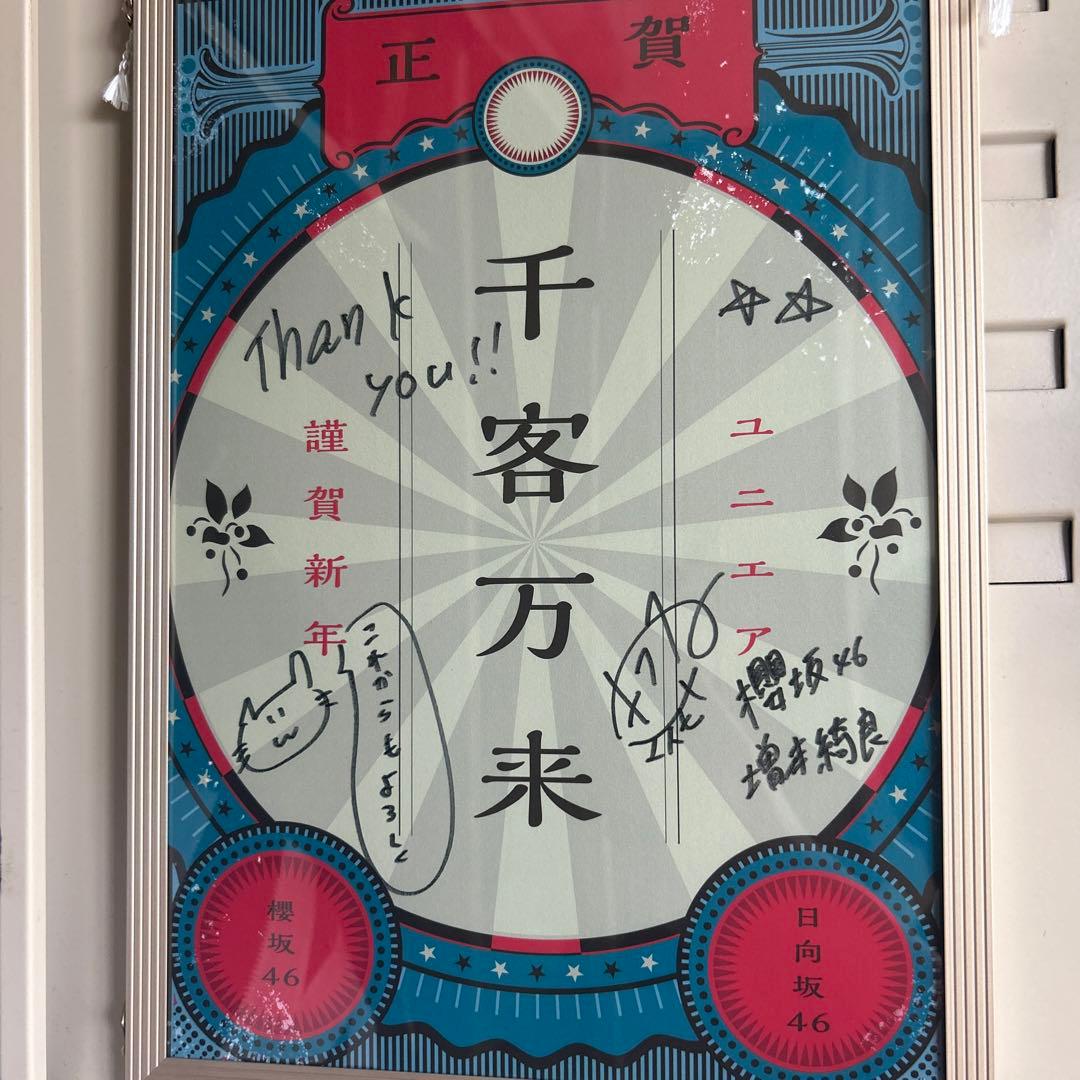 正賀
千客万来
謹賀新年
ユニエア
Thank
you!!
これからもよろしく
櫻坂46
増本綺良
櫻坂46
日向坂46